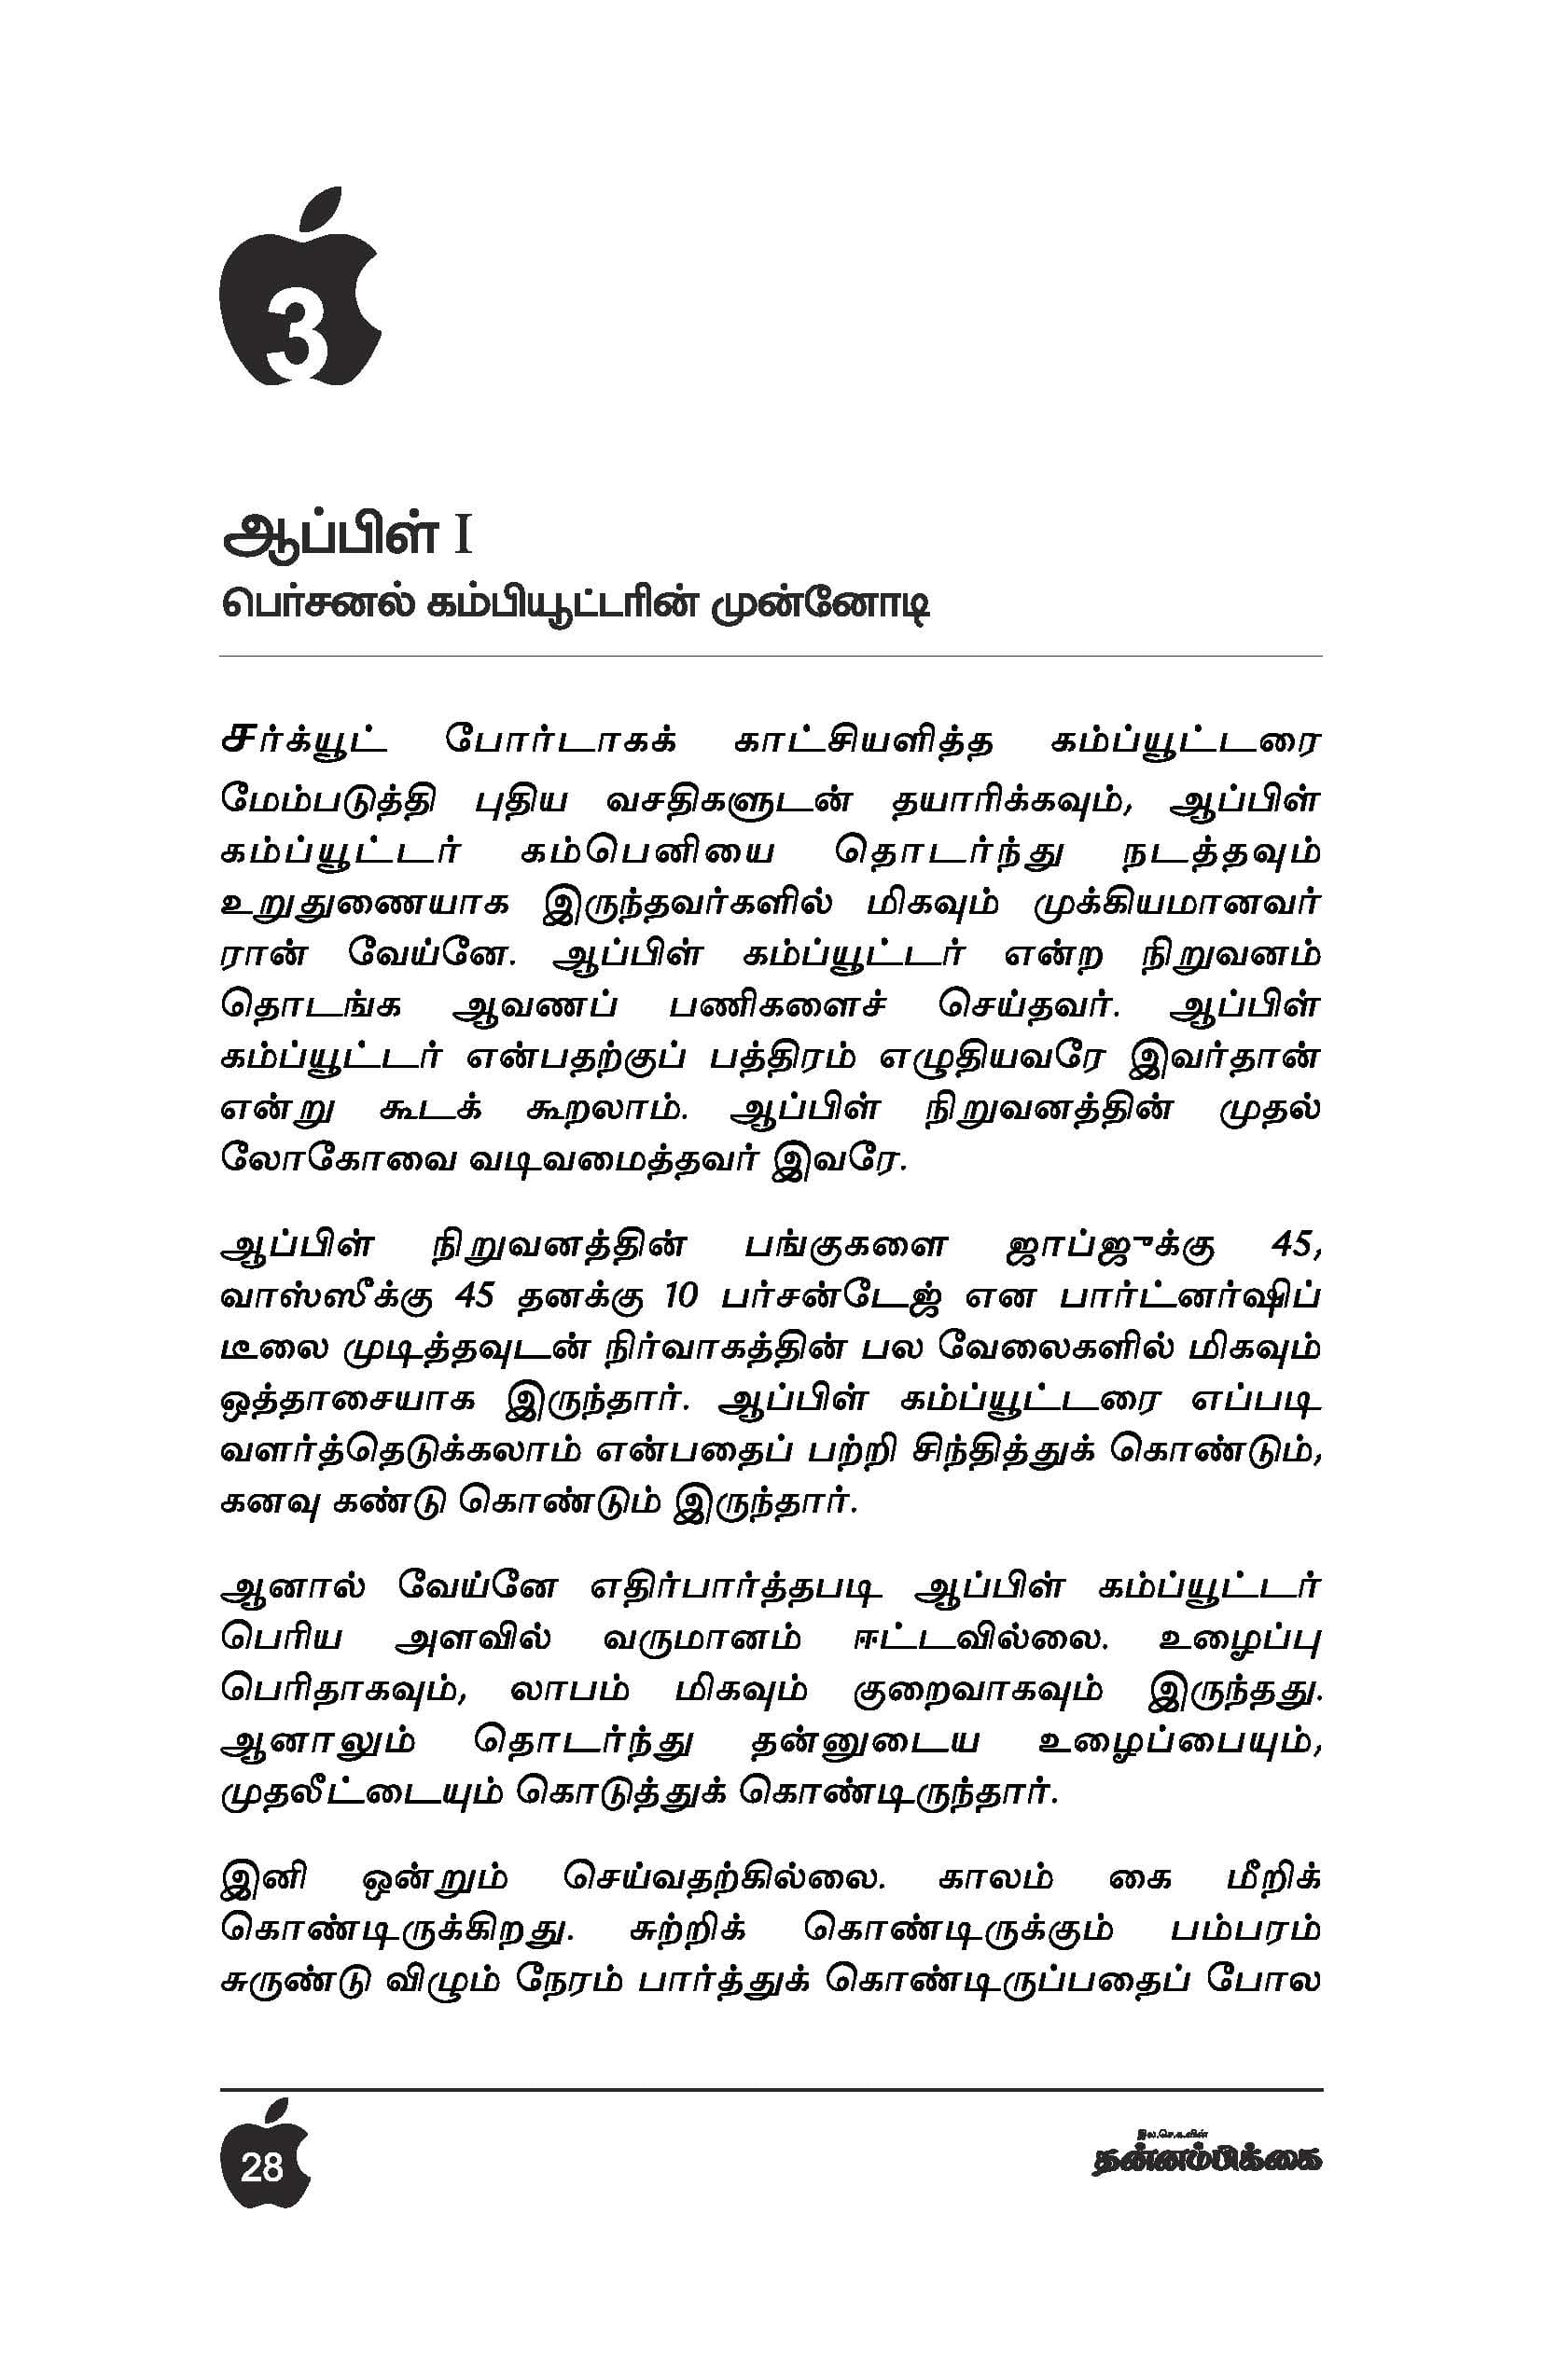 3
ஆப்பிள் I
பெர்சனல் கம்பியூட்டரின் முன்னோடி
சர்க்யூட் போர்டாகக் காட்சியளித்த கம்ப்யூட்டரை
மேம்படுத்தி புதிய வசதிகளுடன் தயாரிக்கவும், ஆப்பிள்
கம்ப்யூட்டர் கம்பெனியை தொடர்ந்து நடத்தவும்
உறுதுணையாக இருந்தவர்களில் மிகவும் முக்கியமானவர்
ரான் வேய்னே. ஆப்பிள் கம்ப்யூட்டர் என்ற நிறுவனம்
தொடங்க ஆவணப் பணிகளைச் செய்தவர். ஆப்பிள்
கம்ப்யூட்டர் என்பதற்குப் பத்திரம் எழுதியவரே இவர்தான்
என்று கூடக் கூறலாம். ஆப்பிள் நிறுவனத்தின் முதல்
லோகோவை வடிவமைத்தவர் இவரே.
ஆப்பிள் நிறுவனத்தின் பங்குகளை ஜாப்ஜுக்கு 45,
வாஸ்ஸீக்கு 45 தனக்கு 10 பர்சன்டேஜ் என பார்ட்னர்ஷிப்
டீலை முடித்தவுடன் நிர்வாகத்தின் பல வேலைகளில் மிகவும்
ஒத்தாசையாக இருந்தார். ஆப்பிள் கம்ப்யூட்டரை எப்படி
வளர்த்தெடுக்கலாம் என்பதைப் பற்றி சிந்தித்துக் கொண்டும்,
கனவு கண்டு கொண்டும் இருந்தார்.
ஆனால் வேய்னே எதிர்பார்த்தபடி ஆப்பிள் கம்ப்யூட்டர்
பெரிய அளவில் வருமானம் ஈட்டவில்லை. உழைப்பு
பெரிதாகவும், லாபம் மிகவும் குறைவாகவும் இருந்தது.
ஆனாலும் தொடர்ந்து தன்னுடைய உழைப்பையும்,
முதலீட்டையும் கொடுத்துக் கொண்டிருந்தார்.
இனி ஒன்றும் செய்வதற்கில்லை. காலம் கை மீறிக்
கொண்டிருக்கிறது. சுற்றிக் கொண்டிருக்கும் பம்பரம்
சுருண்டு விழும் நேரம் பார்த்துக் கொண்டிருப்பதைப் போல
28
இல.செ.க.வின்
தன்னம்பிக்கை